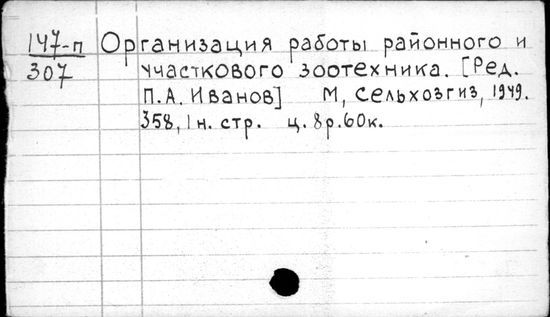 147-п
307
Организация работы районного и
участкового зоотехника. [Ред.
П.А. Иванов] М, Сельхозгиз, 1949.
358, 1 н. стр. ц. 8р.60к.